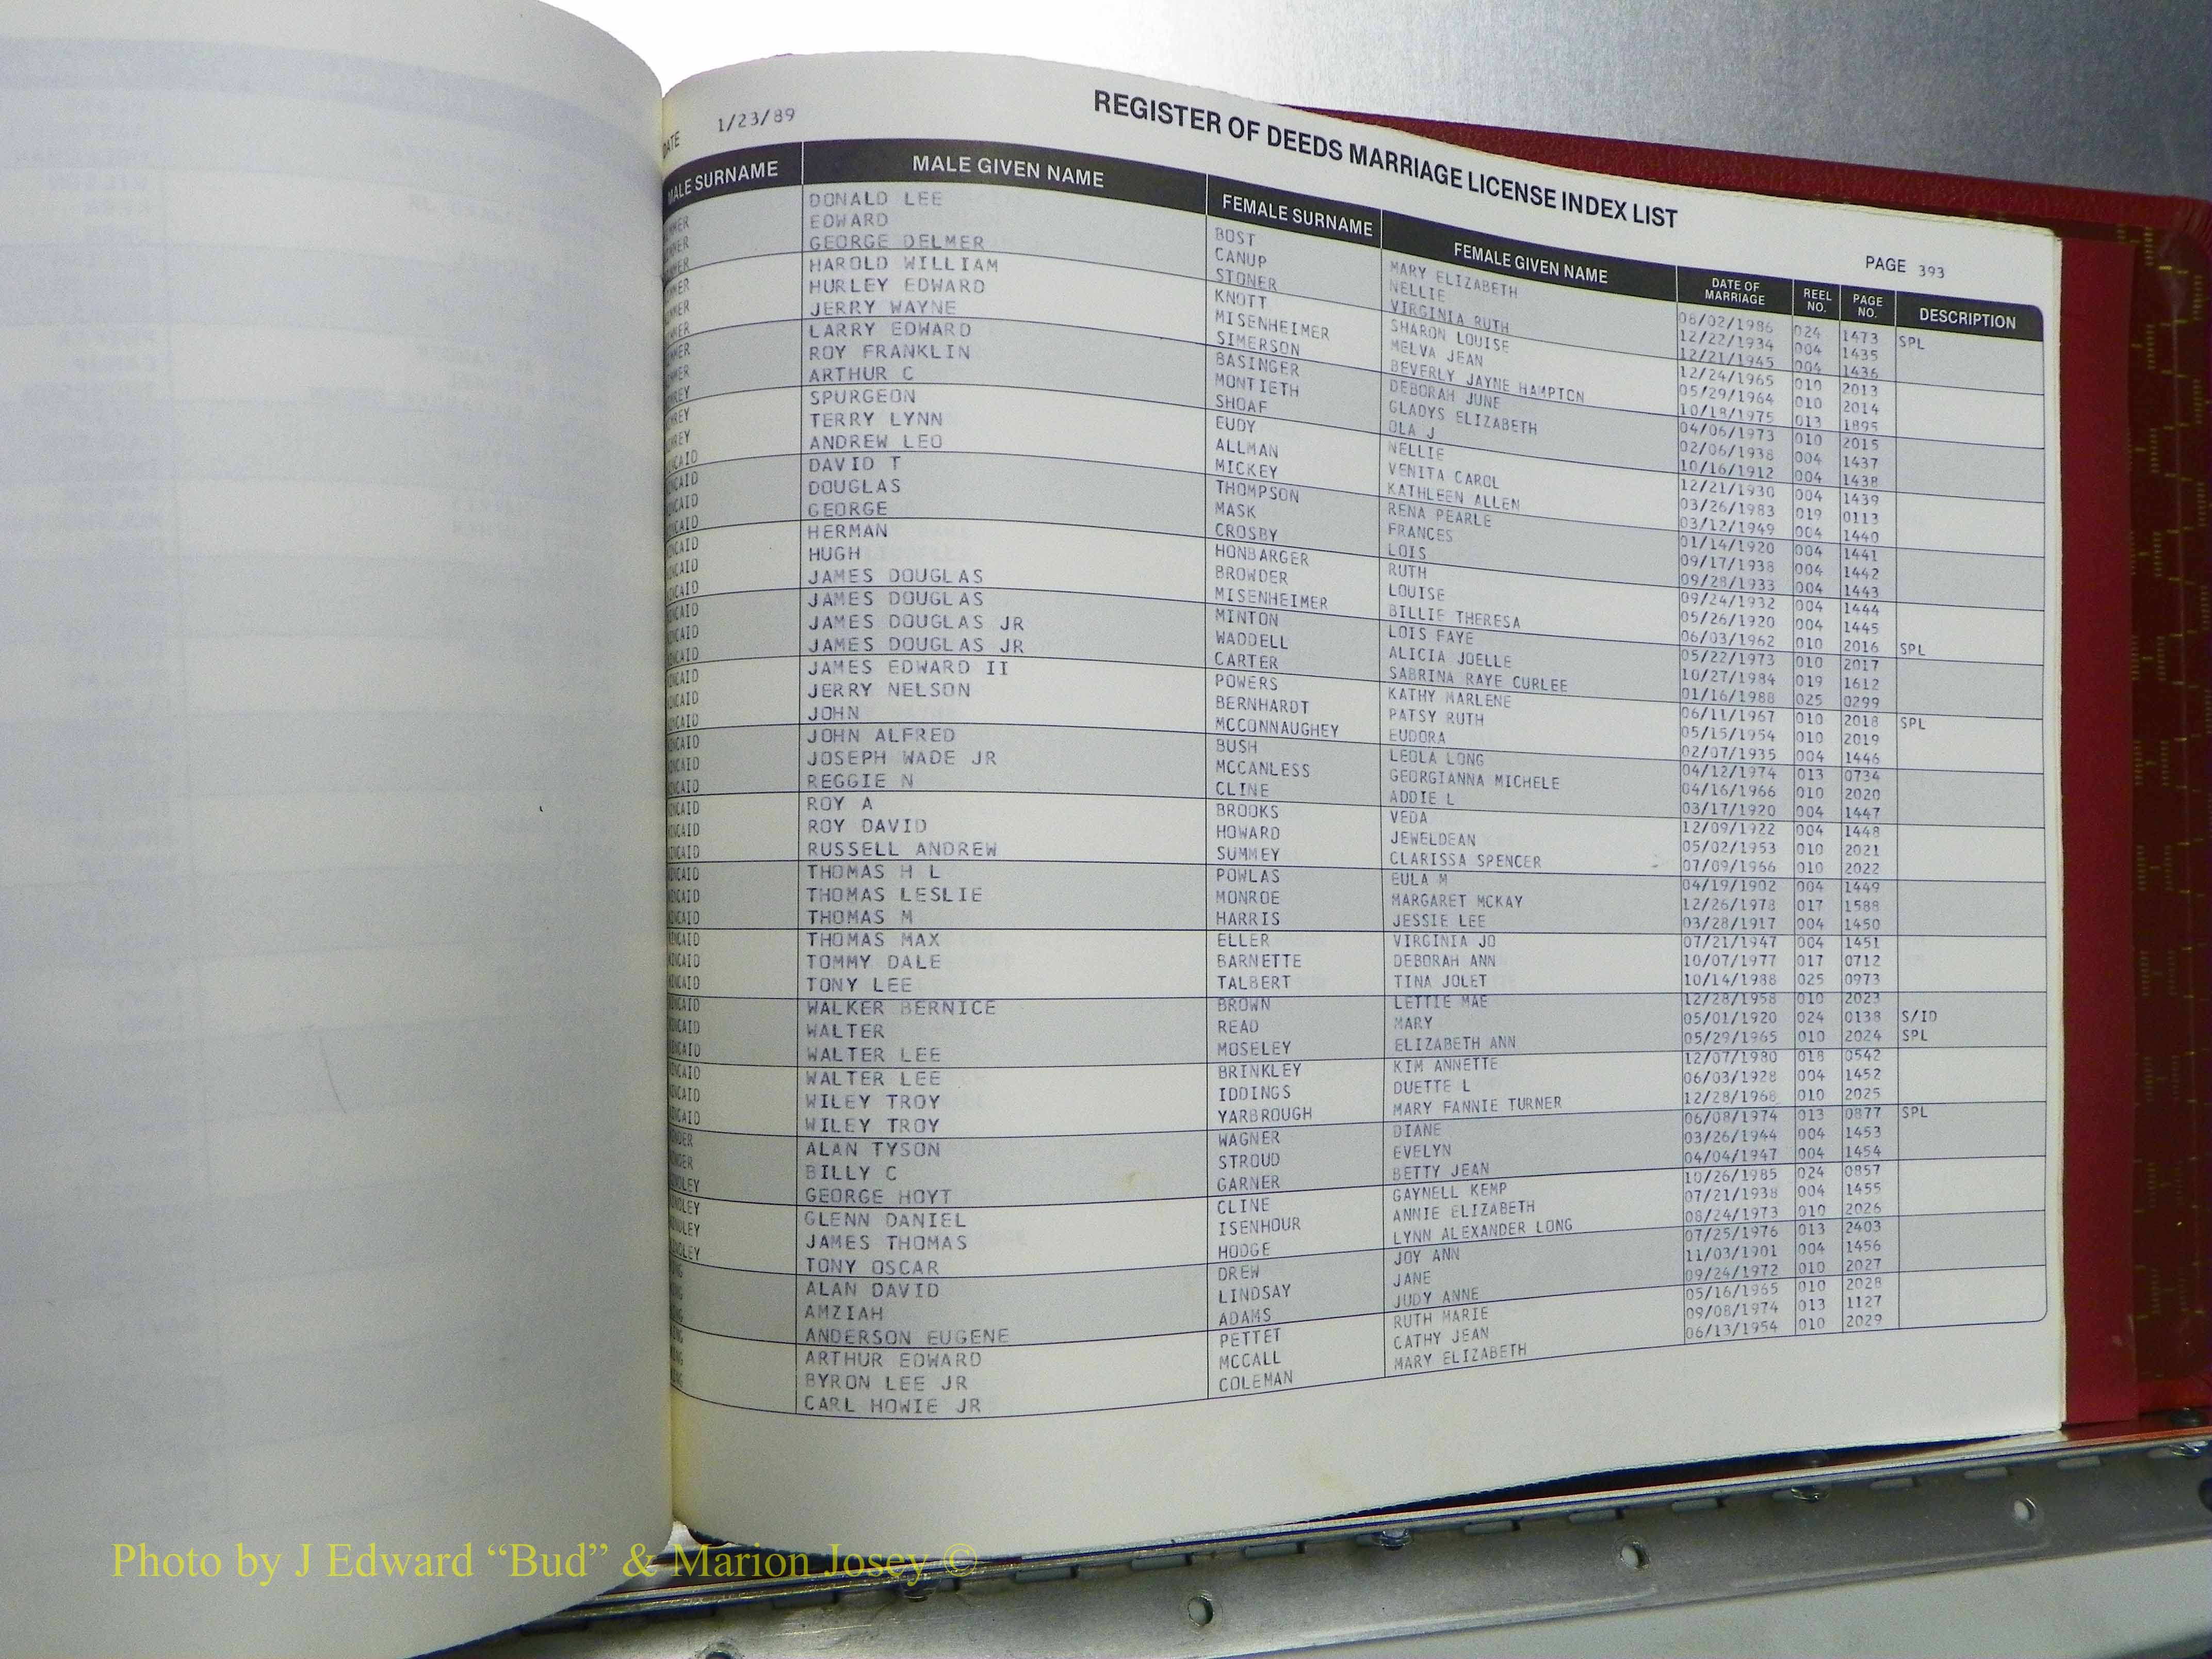 DATE 1/23/89
REGISTER OF DEEDS MARRIAGE LICENSE INDEX LIST
PAGE 393
MALE SURNAME MALE GIVEN NAME FEMALE SURNAME FEMALE GIVEN NAME DATE OF MARRIAGE REEL NO. PAGE NO. DESCRIPTION
DONALD LEE BOST MARY ELIZABETH 08/02/1986 024 1473 SPL
EDWARD CANUP NELLIE 12/22/1934 004 1435
GEORGE DELMER STONER VIRGINIA RUTH 12/21/1945 004 1436
HAROLD WILLIAM KNOTT SHARON LOUISE 12/24/1965 010 2013
HURLEY EDWARD MISENHEIMER MELVA JEAN 05/29/1964 010 2014
JERRY WAYNE SIMERSON BEVERLY JAYNE HAMPTON 10/18/1975 013 1895
LARRY EDWARD BASINGER DEBORAH JUNE 04/06/1973 010 2015
ROY FRANKLIN MONTIETH GLADYS ELIZABETH 02/06/1938 004 1437
ARTHUR C SHOAF OLA J 10/16/1912 004 1438
SPURGEON EUDY NELLIE 12/21/1930 004 1439
TERRY LYNN ALLMAN VENITA CAROL 03/26/1983 019 0113
ANDREW LEO MICKEY KATHLEEN ALLEN 03/12/1949 004 1440
DAVID T THOMPSON RENA PEARLE 01/14/1920 004 1441
DOUGLAS MASK FRANCES 09/17/1938 004 1442
GEORGE CROSBY LOIS 09/28/1933 004 1443
HERMAN HONBARGER RUTH 09/24/1932 004 1444
HUGH BROWDER LOUISE 05/26/1920 004 1445
JAMES DOUGLAS MISENHEIMER BILLIE THERESA 06/03/1962 010 2016 SPL
JAMES DOUGLAS MINTON LOIS FAYE 05/22/1973 010 2017
JAMES DOUGLAS JR WADDELL ALICIA JOELLE 10/27/1984 019 1612
JAMES DOUGLAS JR CARTER SABRINA RAYE CURLEE 01/16/1988 025 0299
JAMES EDWARD II POWERS KATHY MARLENE 06/11/1967 010 2018 SPL
JERRY NELSON BERNHARDT PATSY RUTH 05/15/1954 010 2019
JOHN MCCONNAUGHEY EUDORA 02/07/1935 004 1446
JOHN ALFRED BUSH LEOLA LONG 04/12/1974 013 0734
JOSEPH WADE JR MCCANLESS GEORGIANNA MICHELE 04/16/1966 010 2020
REGGIE N CLINE ADDIE L 03/17/1920 004 1447
ROY A BROOKS VEDA 12/09/1922 004 1448
ROY DAVID HOWARD JEWELDEAN 05/02/1953 010 2021
RUSSELL ANDREW SUMMEY CLARISSA SPENCER 07/09/1966 010 2022
THOMAS H L POWLAS EULA M 04/19/1902 004 1449
THOMAS LESLIE MONROE MARGARET MCKAY 12/26/1978 017 1588
THOMAS M HARRIS JESSIE LEE 03/28/1917 004 1450
THOMAS MAX ELLER VIRGINIA JO 07/21/1947 004 1451
TOMMY DALE BARNETTE DEBORAH ANN 10/07/1977 017 0712
TONY LEE TALBERT TINA JOLET 10/14/1988 025 0973
WALKER BERNICE BROWN LETTIE MAE 12/28/1958 010 2023
WALTER READ MARY 05/01/1920 024 0138 S/ID
WALTER LEE MOSELEY ELIZABETH ANN 05/29/1965 010 2024 SPL
WALTER LEE BRINKLEY KIM ANNETTE 12/07/1980 018 0542
WILEY TROY IDDINGS DUETTE L 06/03/1928 004 1452
WILEY TROY YARBROUGH MARY FANNIE TURNER 12/28/1968 010 2025
ALAN TYSON WAGNER DIANE 06/08/1974 013 0877 SPL
BILLY C STROUD EVELYN 03/26/1944 004 1453
GEORGE HOYT GARNER BETTY JEAN 04/04/1947 004 1454
GLENN DANIEL CLINE GAYNELL KEMP 10/26/1985 024 0857
JAMES THOMAS ISENHOUR ANNIE ELIZABETH 07/21/1938 004 1455
TONY OSCAR HODGE LYNN ALEXANDER LONG 08/24/1973 010 2026
ALAN DAVID DREW JOY ANN 07/25/1976 013 2403
AMZIAH LINDSAY JANE 11/03/1901 004 1456
ANDERSON EUGENE ADAMS JUDY ANNE 09/24/1972 010 2027
ARTHUR EDWARD PETTET RUTH MARIE 05/16/1965 010 2028
BYRON LEE JR MCCALL CATHY JEAN 09/08/1974 013 1127
CARL HOWIE JR COLEMAN MARY ELIZABETH 06/13/1954 010 2029
Photo by J Edward “Bud” & Marion Josey ©